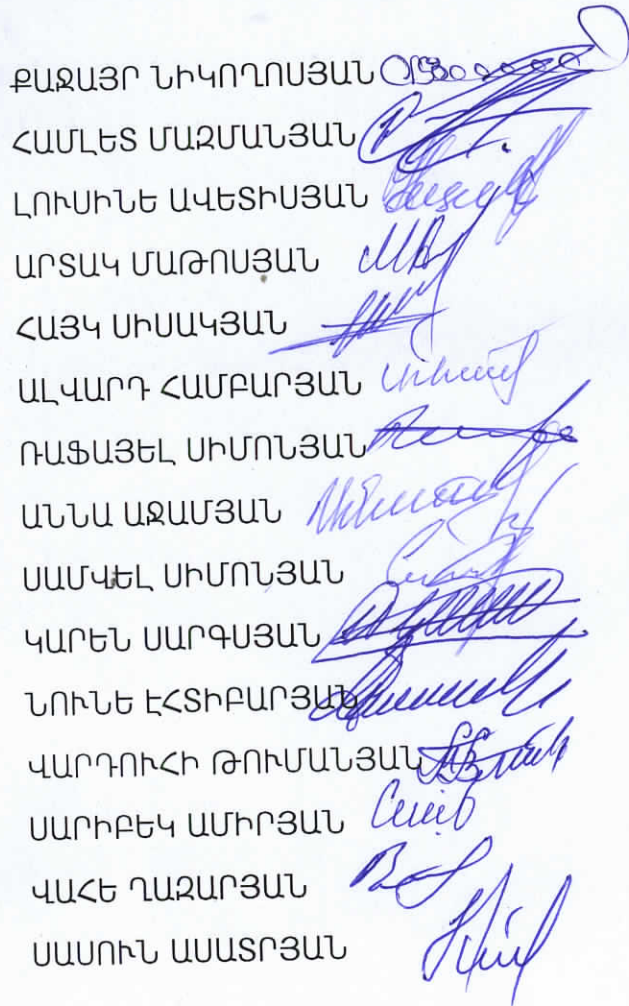 ՔԱՋԱՅՐ ՆԻԿՈՂՈՍՅԱՆ
ՀԱՄԼԵՏ ՄԱԶՄԱՆՅԱՆ
ԼՈՒՍԻՆԵ ԱՎԵՏԻՍՅԱՆ
ԱՐՏԱԿ ՄԱԹՈՍՅԱՆ
ՀԱՅԿ ՍԻՍԱԿՅԱՆ
ԱԼՎԱՐԴ ՀԱՄԲԱՐՅԱՆ
ՌԱՖԱՅԵԼ ՍԻՄՈՆՅԱՆ
ԱՆՆԱ ԱՋԱՄՅԱՆ
ՍԱՄՎԵԼ ՍԻՄՈՆՅԱՆ
ԿԱՐԵՆ ՍԱՐԳՍՅԱՆ
ՆՈՒՆԵ ԷՀՏԻԲԱՐՅԱՆ
ՎԱՐԴՈՒՀԻ ԹՈՒՄԱՆՅԱՆ
ՍԱՐԻԲԵԿ ԱՄԻՐՅԱՆ
ՎԱՀԵ ՂԱԶԱՐՅԱՆ
ՍԱՍՈՒՆ ԱՍԱՏՐՅԱՆ